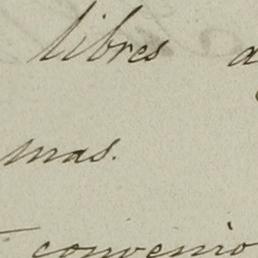 libres a
mas.
convenio